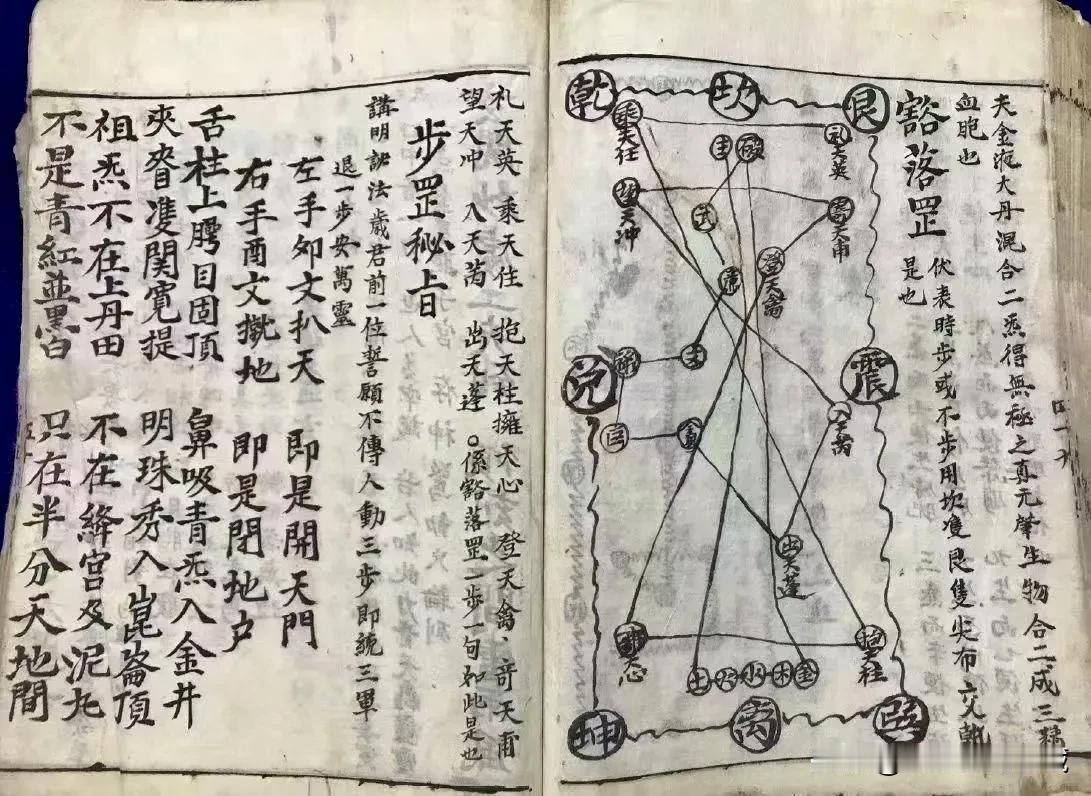 夫金液大丹混合二炁得無極之真元肇生物合二成三
血胞也
豁落罡
伏表時步或不步用坎隻艮隻
是也
四十九
乾
坎
艮
兌
震
坤
離
巽
乘天任
天英
天冲
天甫
登天禽
天芮
出天蓬
天心
抱天柱
土火水木金
礼天英 乘天任 抱天柱 擁天心 登天禽 奇天甫
望天冲 入天芮 出天蓬 係豁落罡一步一句如此是也
步罡秘上日
講明訣法歲君前一位誓願不傳人動三步即號三軍
退一步安萬靈
左手卯文扒天 即是開天門
右手酉文撳地 即是閉地户
舌柱上腭目固頂 鼻吸青炁入金井
夾脊雙関寬提 明珠秀入崑崙頂
祖炁不在上丹田 不在絳宮及泥丸
不是青紅並黑白 只在半分天地間